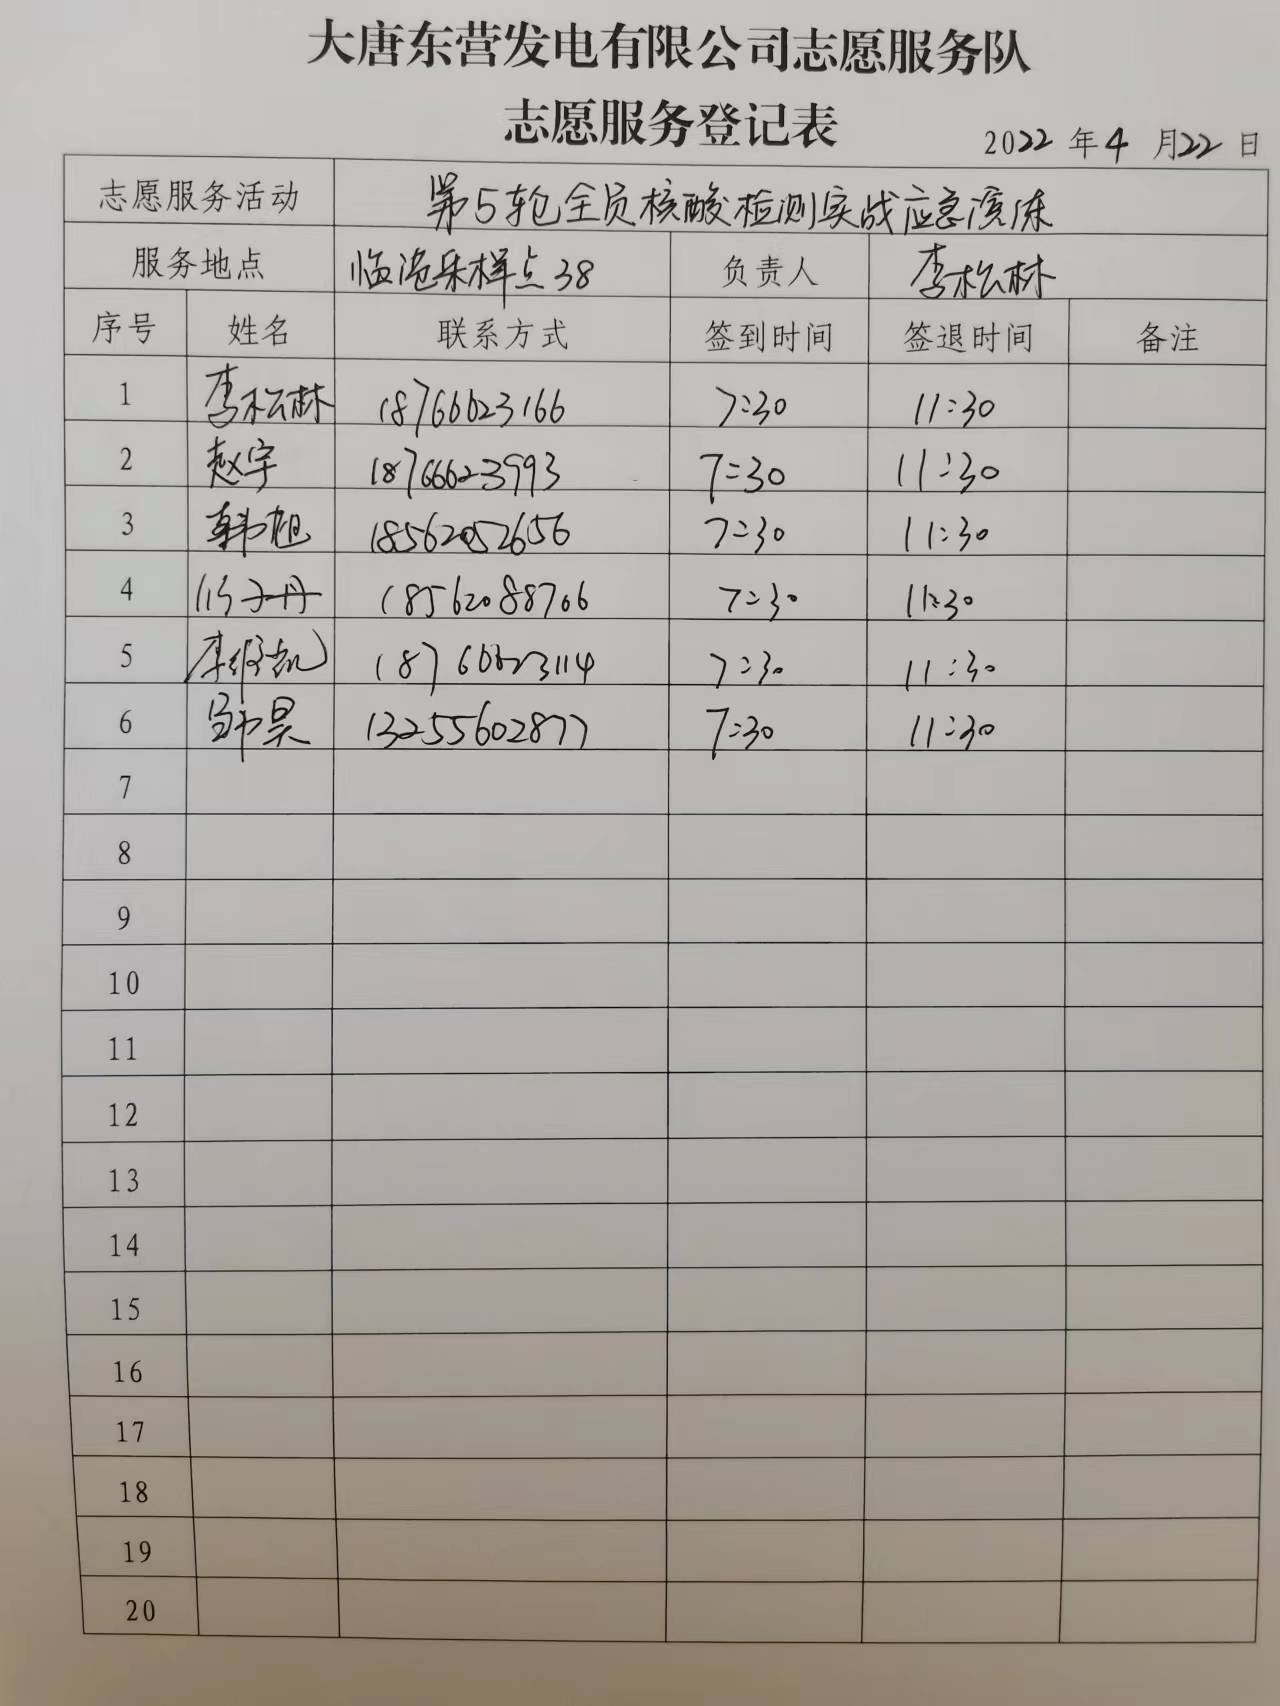 大唐东营发电有限公司志愿服务队
志愿服务登记表
2022 年 4 月 22 日
志愿服务活动 第5轮全员核酸检测实战应急演练
服务地点 临港采样点38 负责人 李松林
序号 姓名 联系方式 签到时间 签退时间 备注
1 李松林 18766623166 7:30 11:30
2 赵宇 18766623993 7:30 11:30
3 韩旭 18562052656 7:30 11:30
4 18562088706 7:30 11:30
5 18766623114 7:30 11:30
6 13255602877 7:30 11:30
7
8
9
10
11
12
13
14
15
16
17
18
19
20